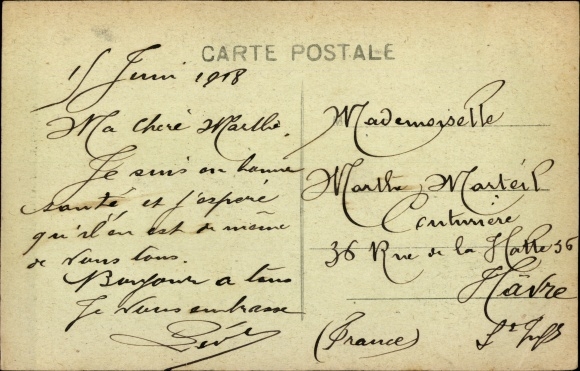 CARTE POSTALE
15 Juin 1918
Ma chère Marthe,
Je suis en bonne
santé et j'espère
qu'il en est de même
de vous tous.
Bonjour a tous
Je vous embrasse
Mademoiselle
Marthe Martéil
Couturière
36 Rue de la Halle 36
Hâvre
(France)